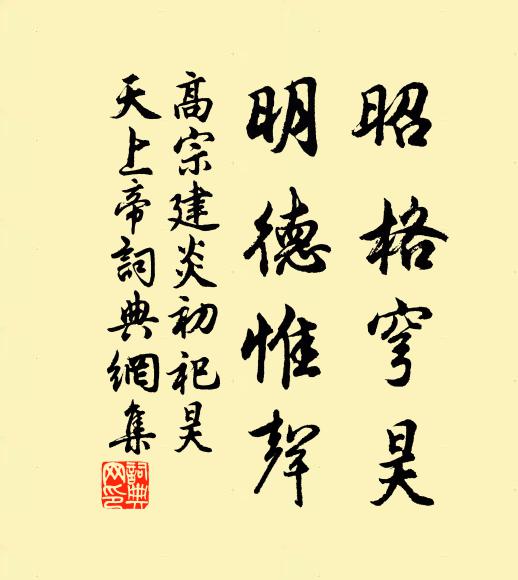 昭格穹昊
明德惟聲
高宗建炎初祀昊
天上帝詞典網集
詞典
网印